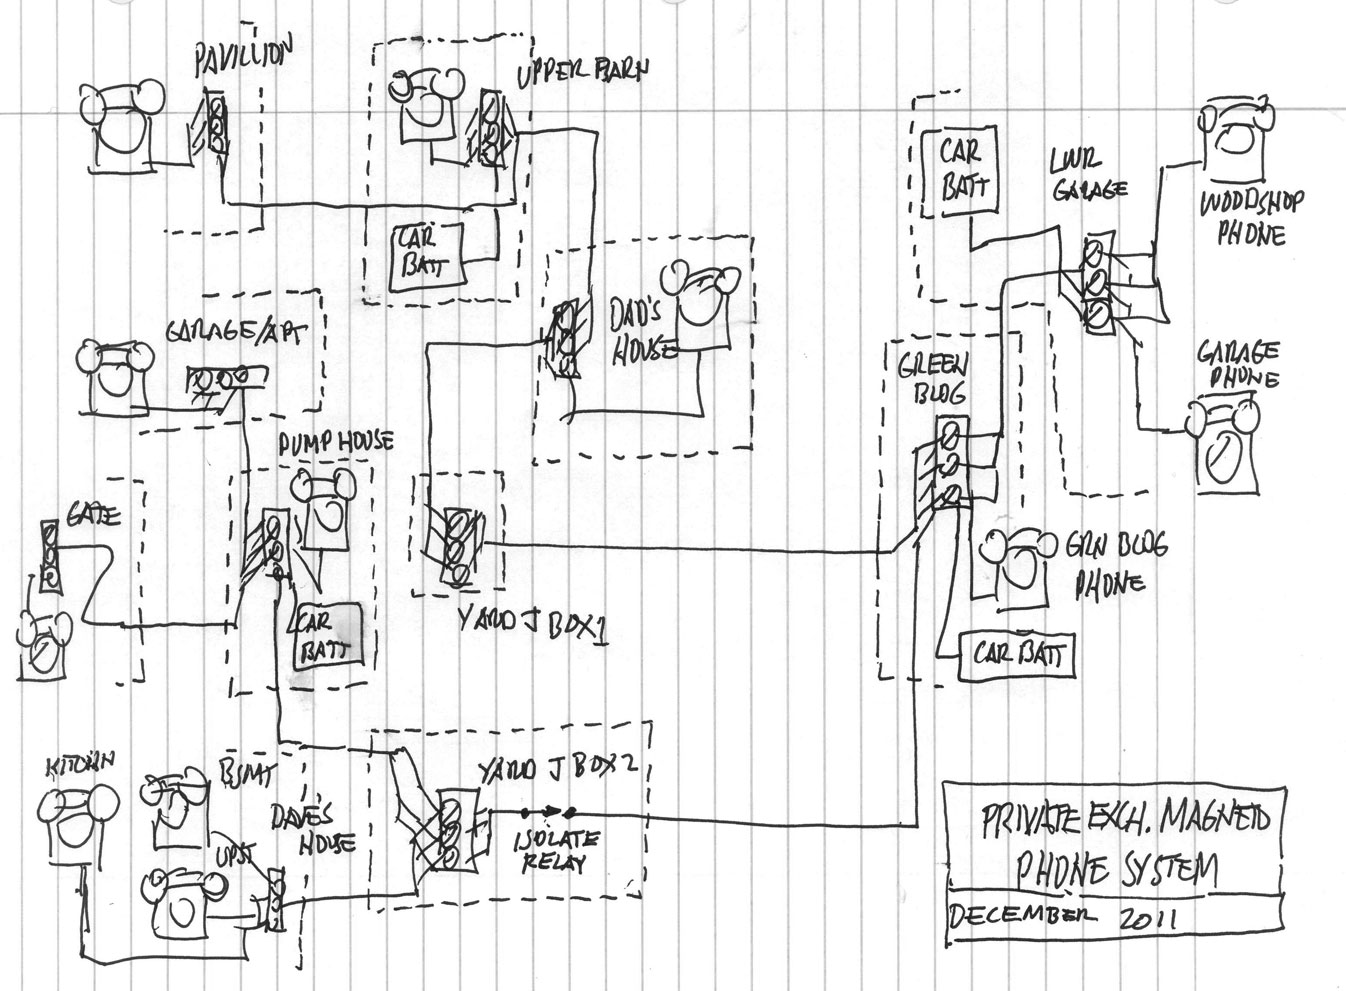 PAVILLION
UPPER BARN
CAR
BATT
CAR
BATT
LWR
GARAGE
WOODSHOP
PHONE
GARAGE/APT
DAD'S
HOUSE
GREEN
BLDG
GARAGE
PHONE
PUMP HOUSE
GATE
CAR
BATT
YARD J BOX 1
GRN BLDG
PHONE
CAR BATT
KITCHN
BSMT
UPST
DAVE'S
HOUSE
YARD J BOX 2
ISOLATE
RELAY
PRIVATE EXCH. MAGNETO
PHONE SYSTEM
DECEMBER 2011